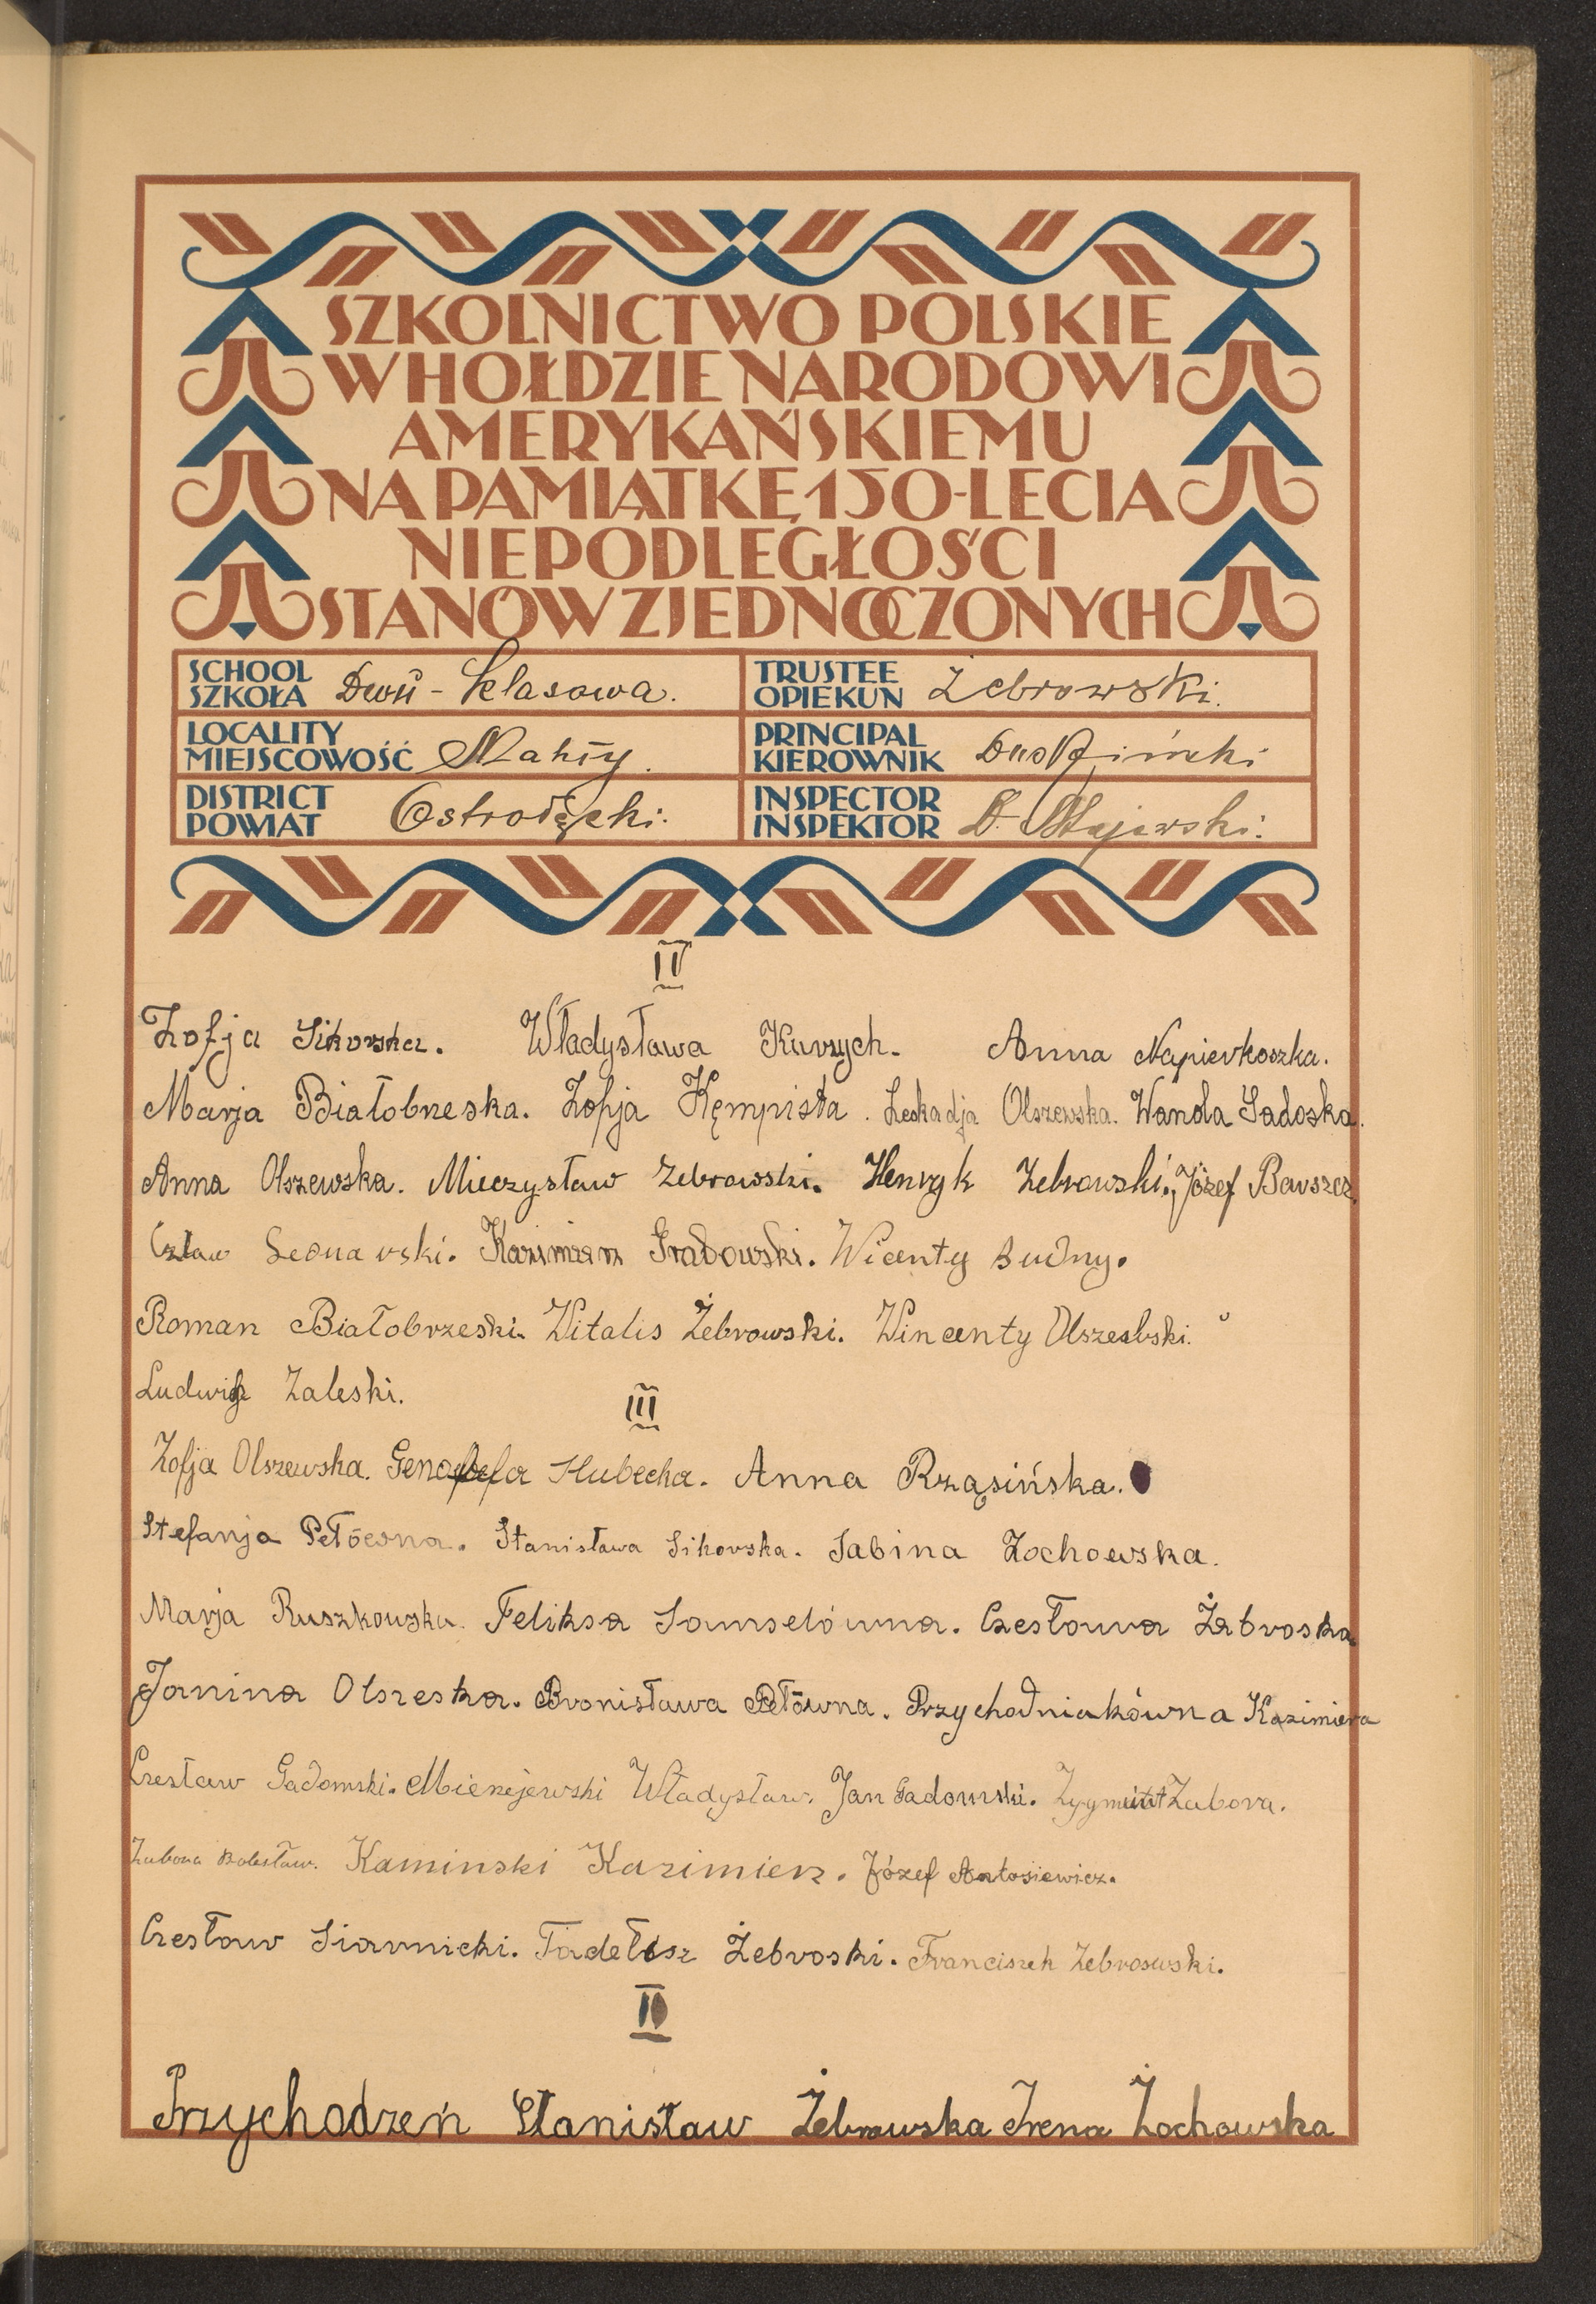 SZKOLNICTWO POLSKIE
W HOŁDZIE NARODOWI
AMERYKAŃSKIEMU
NA PAMIĄTKĘ 150-LECIA
NIEPODLEGŁOŚCI
STANÓW ZJEDNOCZONYCH
SCHOOL SZKOŁA Dwu-klasowa. TRUSTEE OPIEKUN Żebrowski.
LOCALITY MIEJSCOWOŚĆ PRINCIPAL KIEROWNIK
DISTRICT POWIAT Ostrołęcki. INSPECTOR INSPEKTOR
IV
Zofja Sikorska. Władysława Kurzych. Anna Napierkoszka.
Marja Białobrzeska. Zofja Kęmpista. Leokadja Olszewska. Wanda Sadoska.
Anna Olszewska. Mieczysław Żebrowski. Henryk Zebrowski. Józef Barszcz.
Kazimierz Grabowski. Wicenty Budny.
Roman Białobrzeski. Witalis Żebrowski. Wincenty Olszewski.
Ludwik Zaleski.
III
Zofja Olszewska. Genofefa Kubecka. Anna Rząsińska.
Stefanja Pełówna. Stanisława Sikorska. Sabina Żochowska.
Marja Ruszkowska. Feliksa Samselówna. Czesława Żebroska
Janina Olszeska. Bronisława Pełówna. Przychodniakówna Kazimiera
Czesław Gadomski. Mierzejewski Władysław. Jan Gadomski. Zygmunt Zabora.
Zabora Bolesław. Kaminski Kazimierz. Józef Antosiewicz.
Czesław Siarnicki. Tadełusz Żebroski. Franciszek Zebrowski.
II
Przychodzeń Stanisław Żebrowska Irena Żochowska